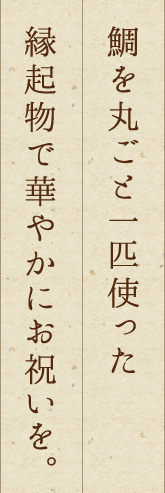 鯛を丸ごと一匹使った
縁起物で華やかにお祝いを。